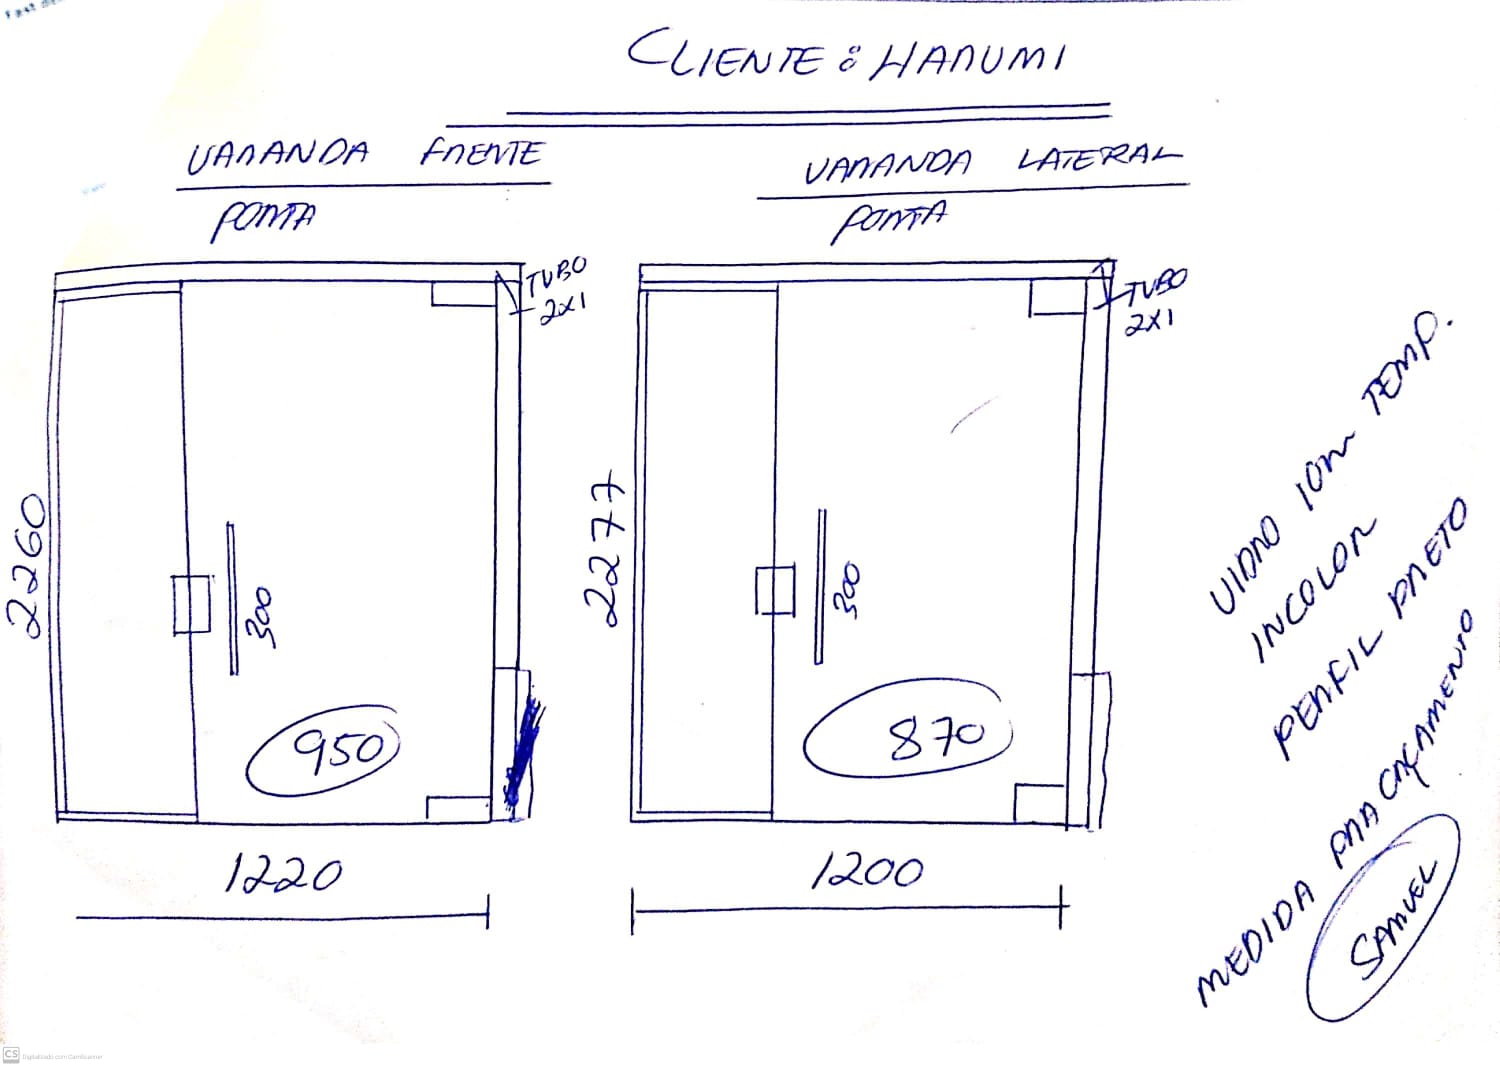 CLIENTE: HARUMI
VARANDA FRENTE
PORTA
TUBO
2X1
2260
300
950
1220
VARANDA LATERAL
PORTA
TUBO
2X1
2277
300
870
1200
VIDRO 10m TEMP.
INCOLOR
PERFIL PRETO
MEDIDA PRA ORÇAMENTO
SAMUEL
CS Digitalizado com CamScanner